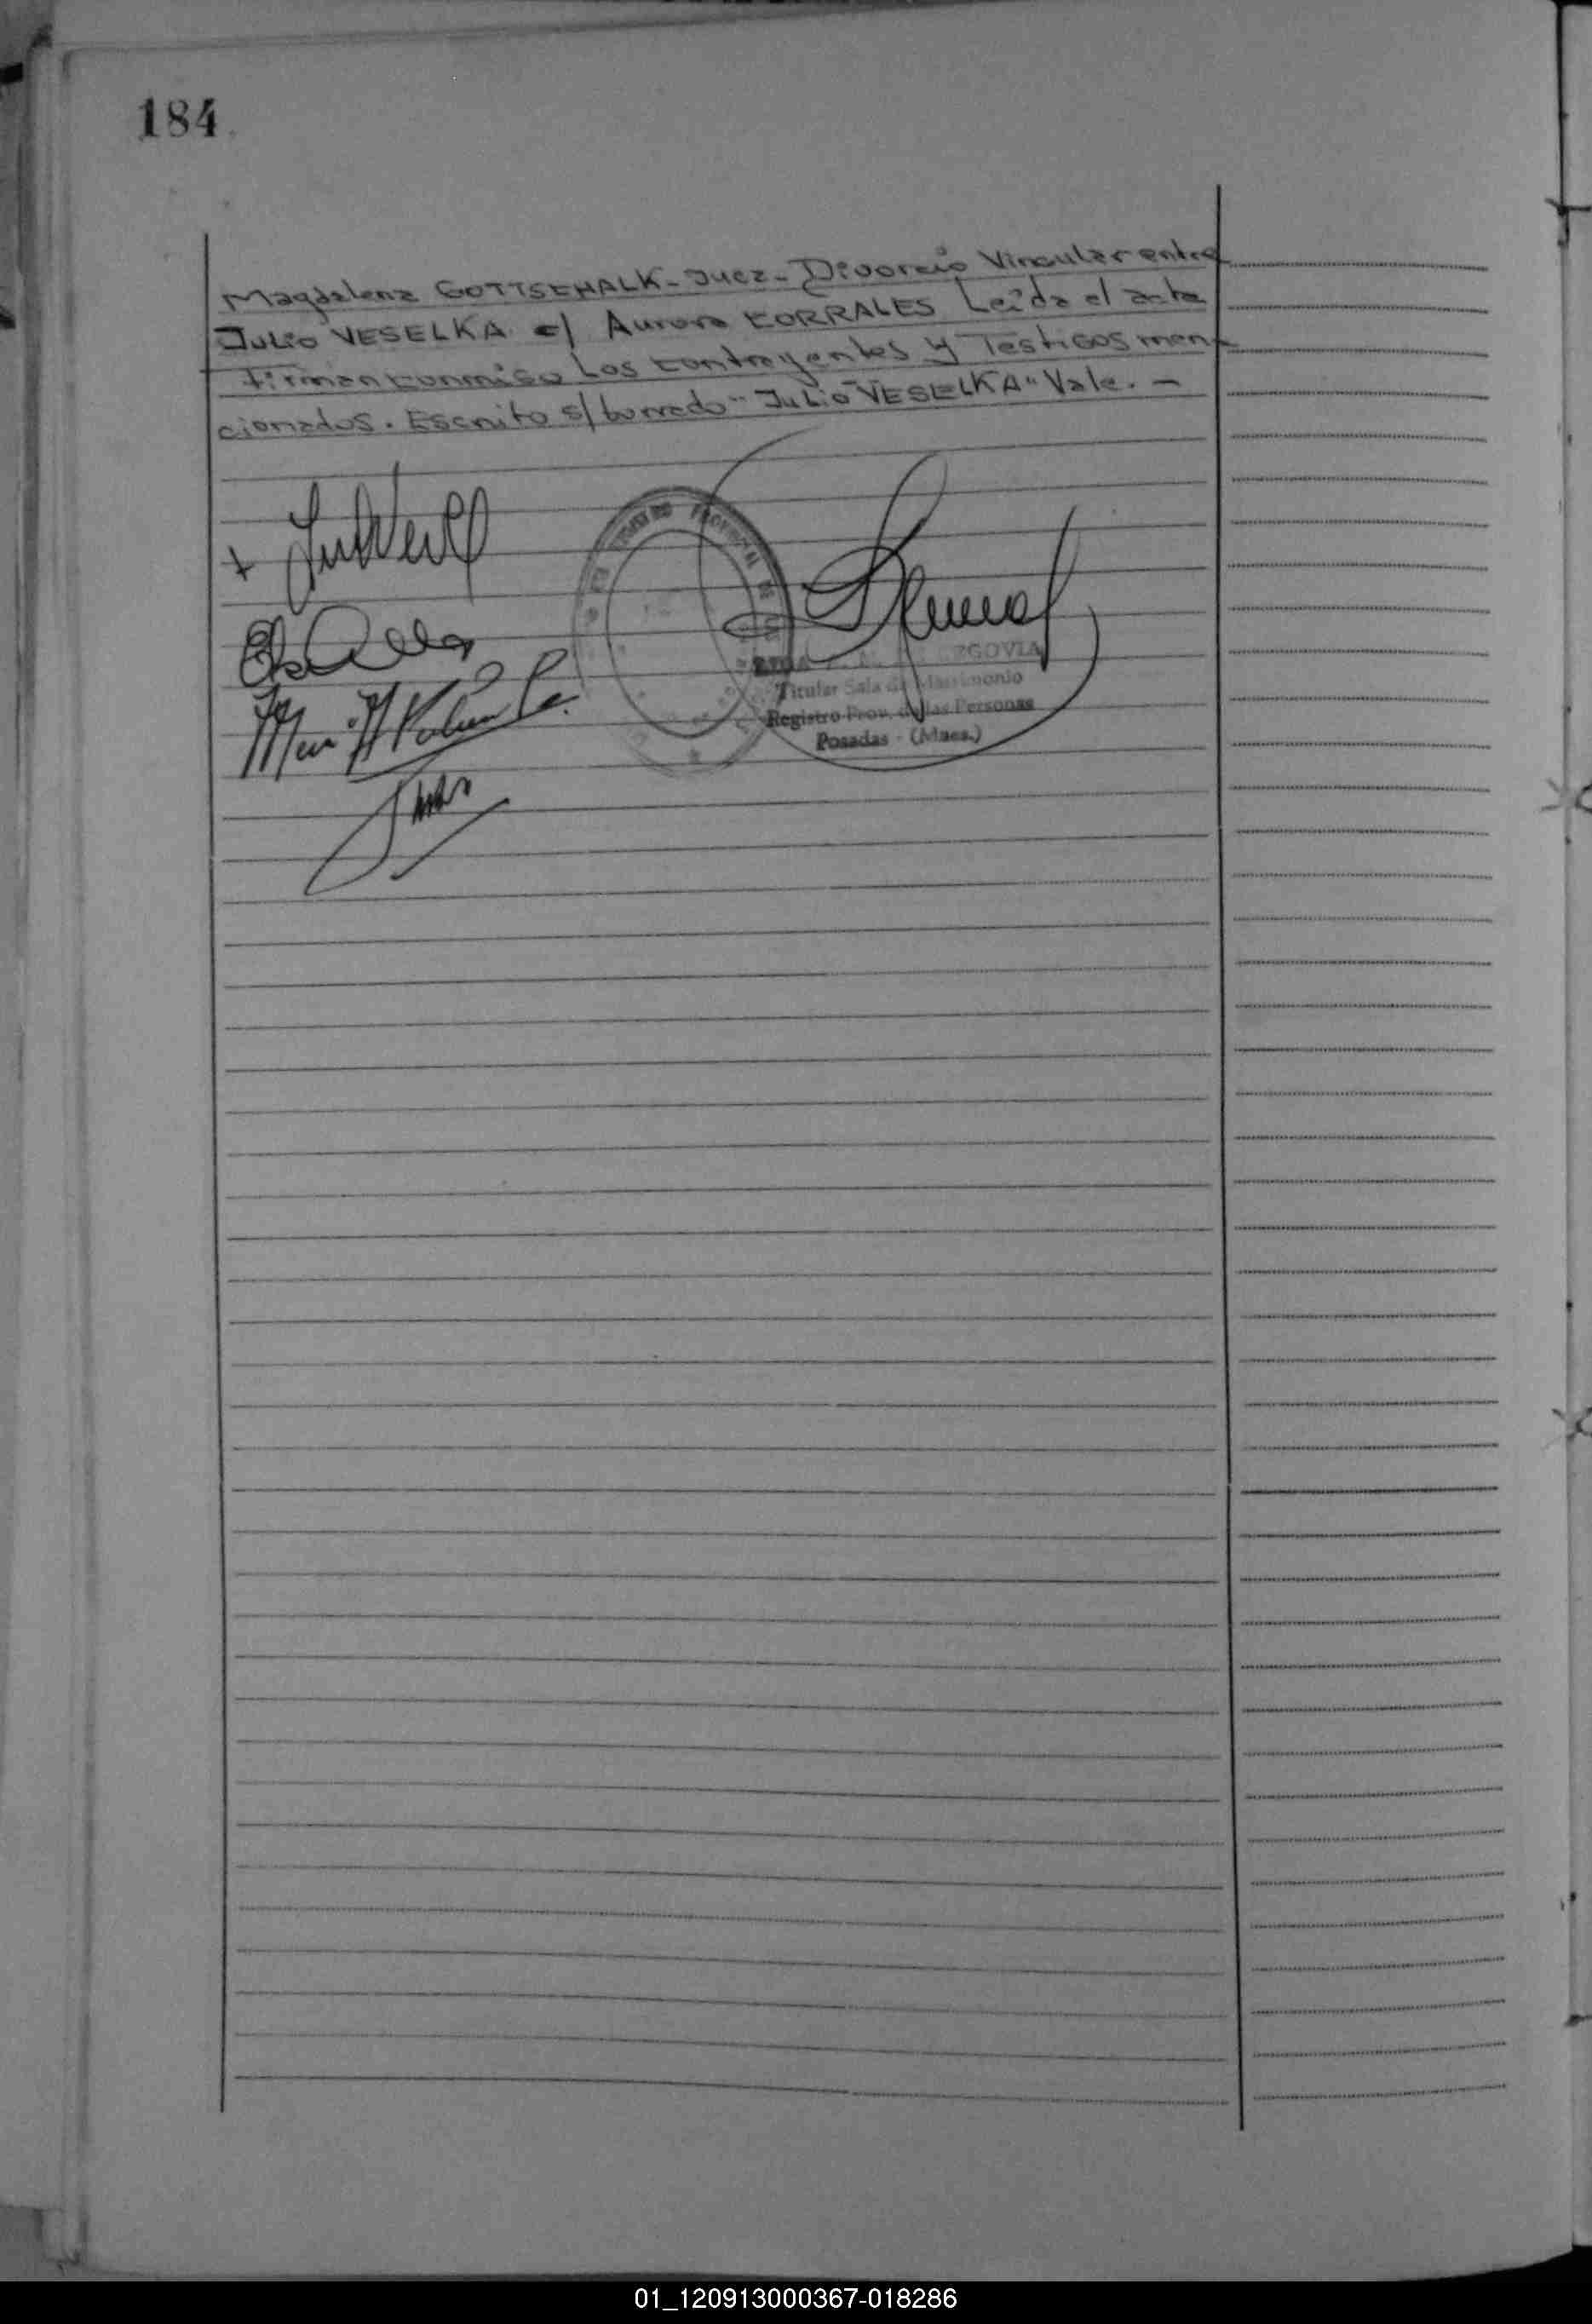 184
Magdalena GOTTSCHALK - Juez - Divorcio Vincular entre
Julio VESELKA c/ Aurora CORRALES Leída el acta
firman conmigo Los contrayentes y Testigos men-
cionados. Escrito s/ borrado "Julio VESELKA" Vale. -
Titular Sala de Matrimonio
Registro Prov. de las Personas
Posadas - (Mnes.)
01_120913000367-018286